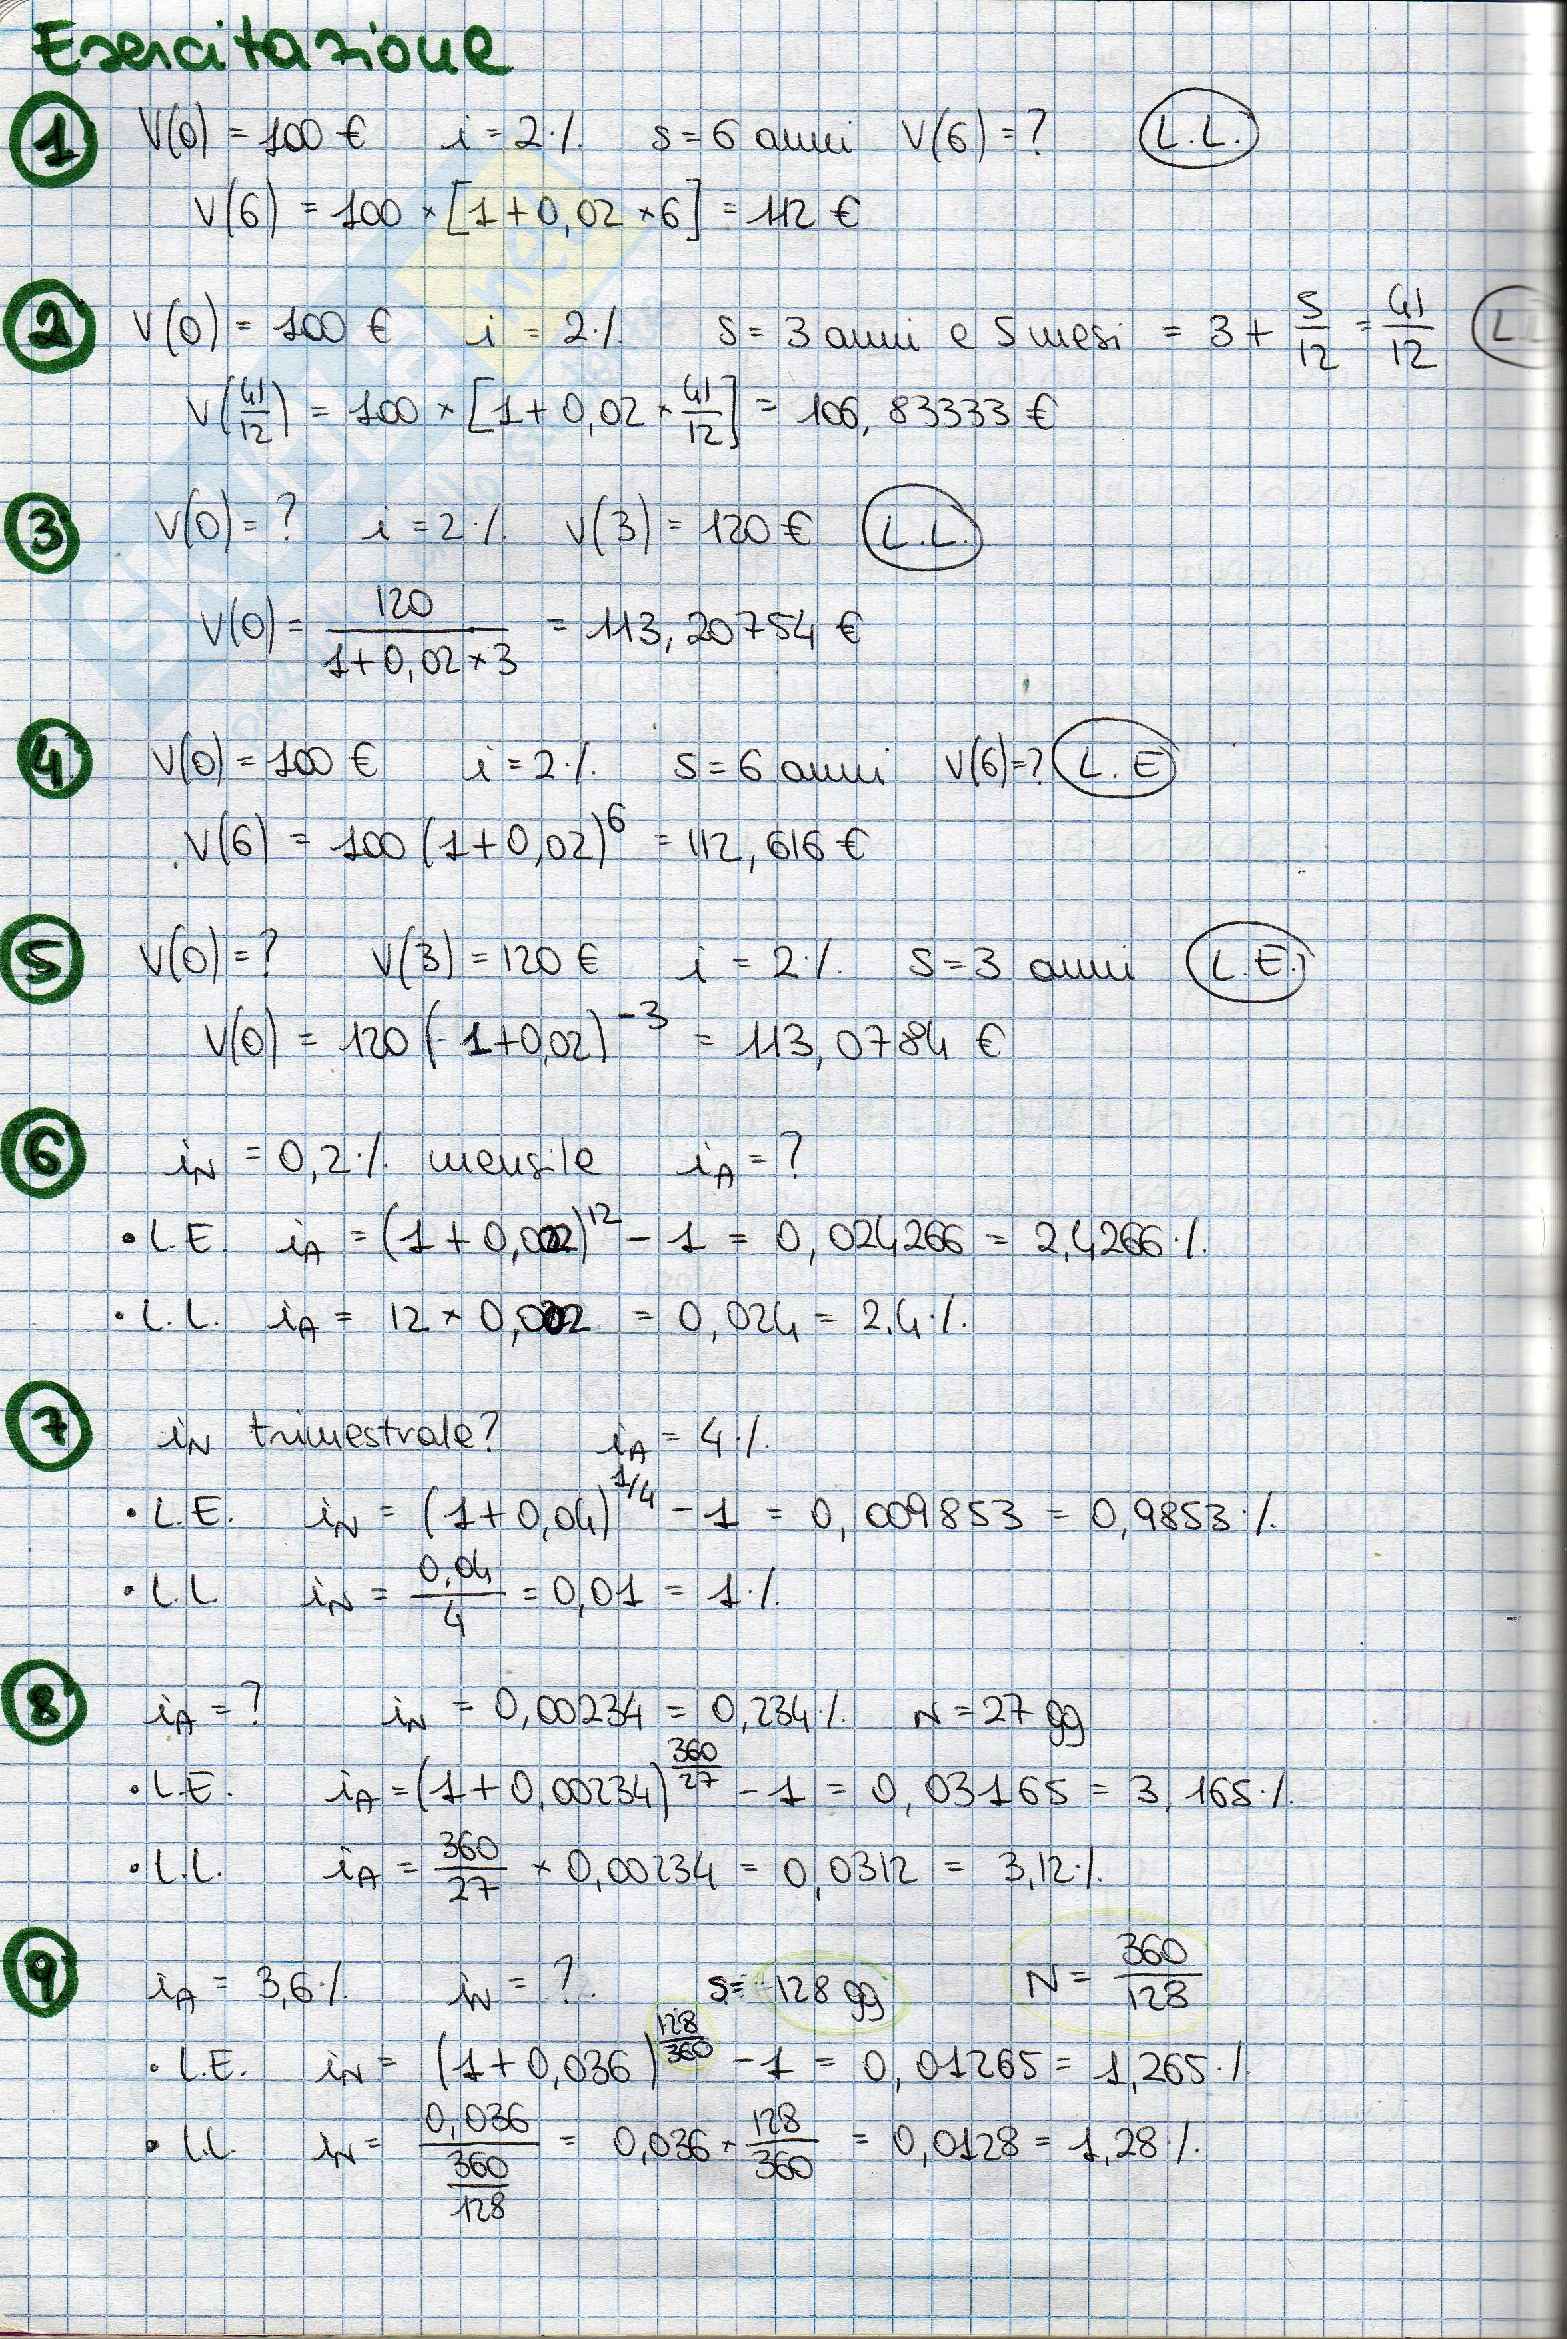 Esercitazione
1 V(0) = 100 € i = 2% s = 6 anni V(6) = ? L.L.
V(6) = 100 × [1 + 0,02 × 6] = 112 €
2 V(0) = 100 € i = 2% s = 3 anni e 5 mesi = 3 + 5/12 = 41/12
V(41/12) = 100 × [1 + 0,02 × 41/12] = 106,83333 €
3 V(0) = ? i = 2% V(3) = 120 € L.L.
V(0) = 120/(1 + 0,02 × 3) = 113,20754 €
4 V(0) = 100 € i = 2% s = 6 anni V(6) = ? L.E
V(6) = 100 (1 + 0,02)^6 = 112,616 €
5 V(0) = ? V(3) = 120 € i = 2% s = 3 anni L.E.
V(0) = 120 (1 + 0,02)^-3 = 113,0784 €
6 iN = 0,2% mensile iA = ?
• L.E. iA = (1 + 0,002)^12 - 1 = 0,024266 = 2,4266%
• L.L. iA = 12 × 0,002 = 0,024 = 2,4%
7 iN trimestrale? iA = 4%
• L.E. iN = (1 + 0,04)^1/4 - 1 = 0,009853 = 0,9853%
• L.L iN = 0,04/4 = 0,01 = 1%
8 iA = ? iN = 0,00234 = 0,234% N = 27 gg
• L.E. iA = (1 + 0,00234)^360/27 - 1 = 0,03165 = 3,165%
• L.L. iA = 360/27 × 0,00234 = 0,0312 = 3,12%
9 iA = 3,6% iN = ? s = 128 gg N = 360/128
• L.E. iN = (1 + 0,036)^128/360 - 1 = 0,01265 = 1,265%
• L.L. iN = 0,036/(360/128) = 0,036 × 128/360 = 0,0128 = 1,28%